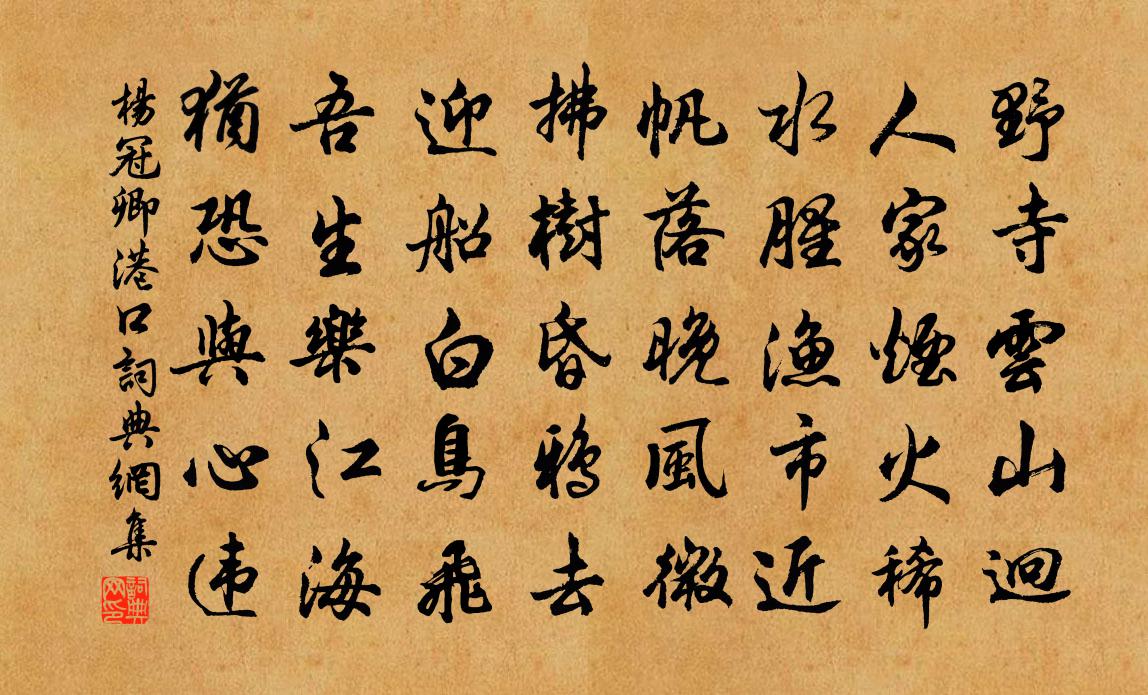 野寺雲山迥
人家煙火稀
水腥漁市近
帆落晚風微
拂樹昏鴉去
迎船白鳥飛
吾生樂江海
猶恐與心違
楊冠卿港口詞典網集